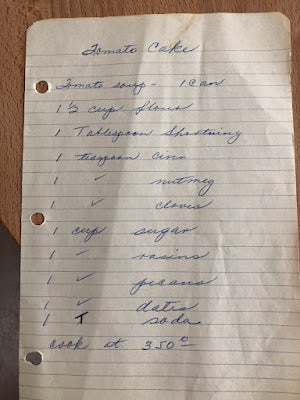 Tomato Cake
Tomato soup - 1 Can
1 ½ cup flour
1 Tablespoon Shortning
1 teaspoon cinn
1 " nutmeg
1 " cloves
1 cup sugar
1 " rasins
1 " pecans
1 " dates
1 T soda
cook at 350°